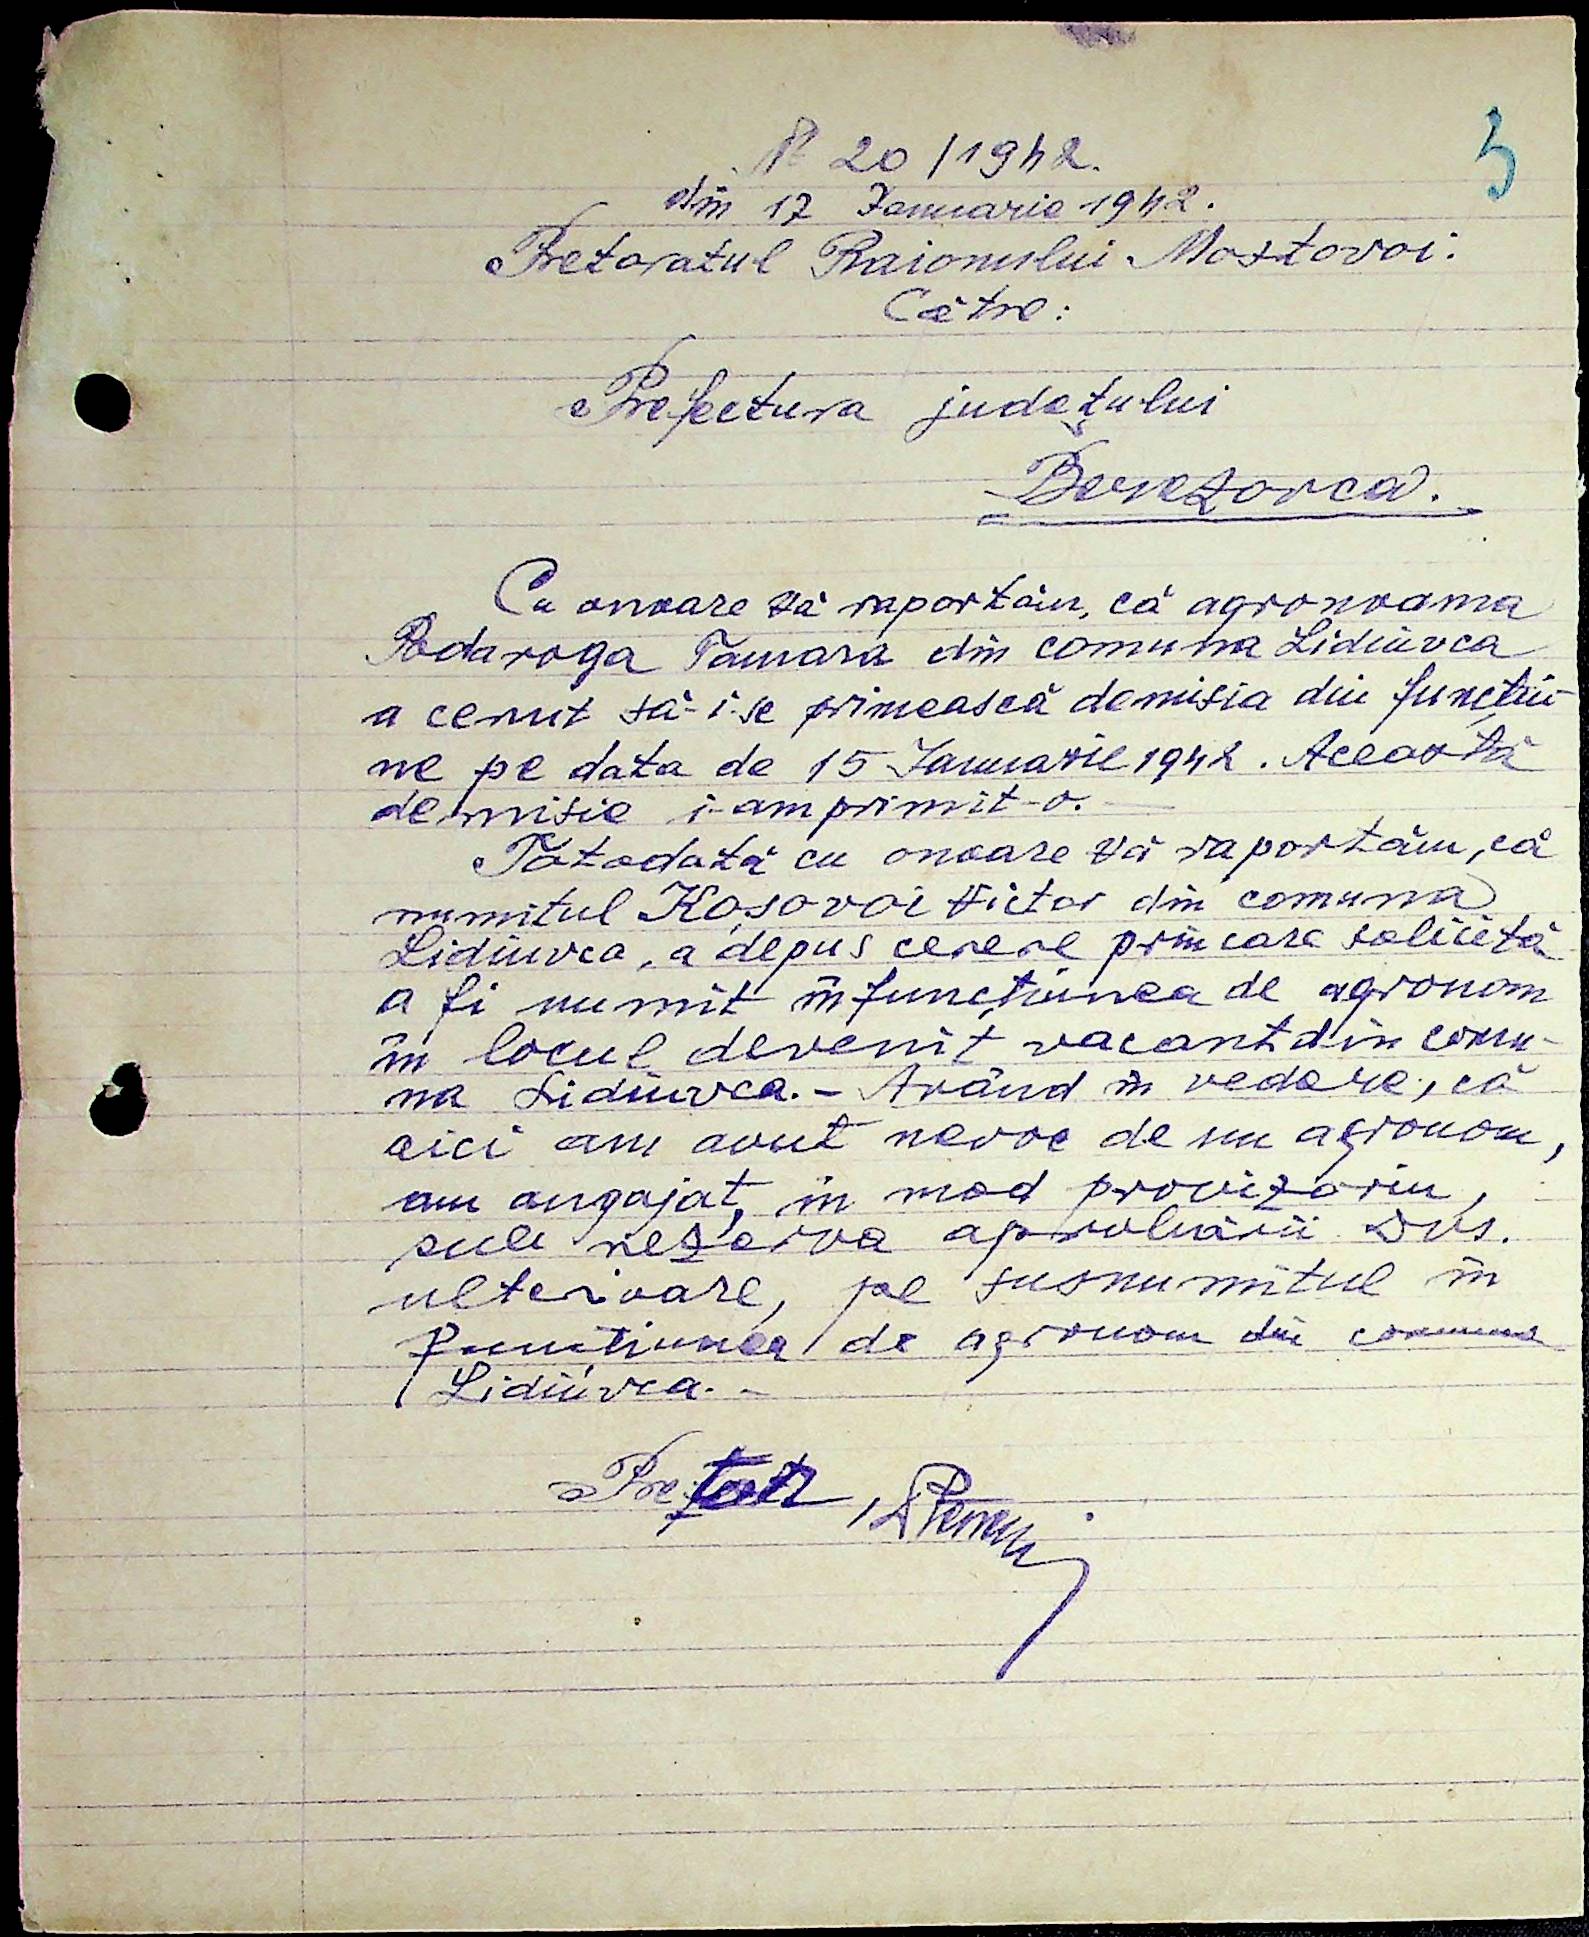 № 20/1942.
5
din 17 Ianuarie 1942.
Pretoratul Raionului Mostovoi.
Către:
Prefectura județului
Berezovca.
Cu onoare vă raportăm, că agronoama
Podaroga Tamara din comuna Lidiuvca
a cerut să-i-se primească demisia din funcțiu-
ne pe data de 15 Ianuarie 1942. Această
demisie i-am primit-o.
Totodată cu onoare vă raportăm, că
numitul Kosovoi Victor din comuna
Lidiuvca, a depus cerere prin care solicită
a fi numit în funcțiunea de agronom
în locul devenit vacant din comu-
na Lidiuvca. - Având în vedere, că
aici am avut nevoe de un agronom,
am angajat, în mod provizoriu,
sub rezerva aprobării Dvs.
ulterioare, pe susnumitul în
funcțiunea de agronom din comuna
Lidiuvca. -
Pretor,